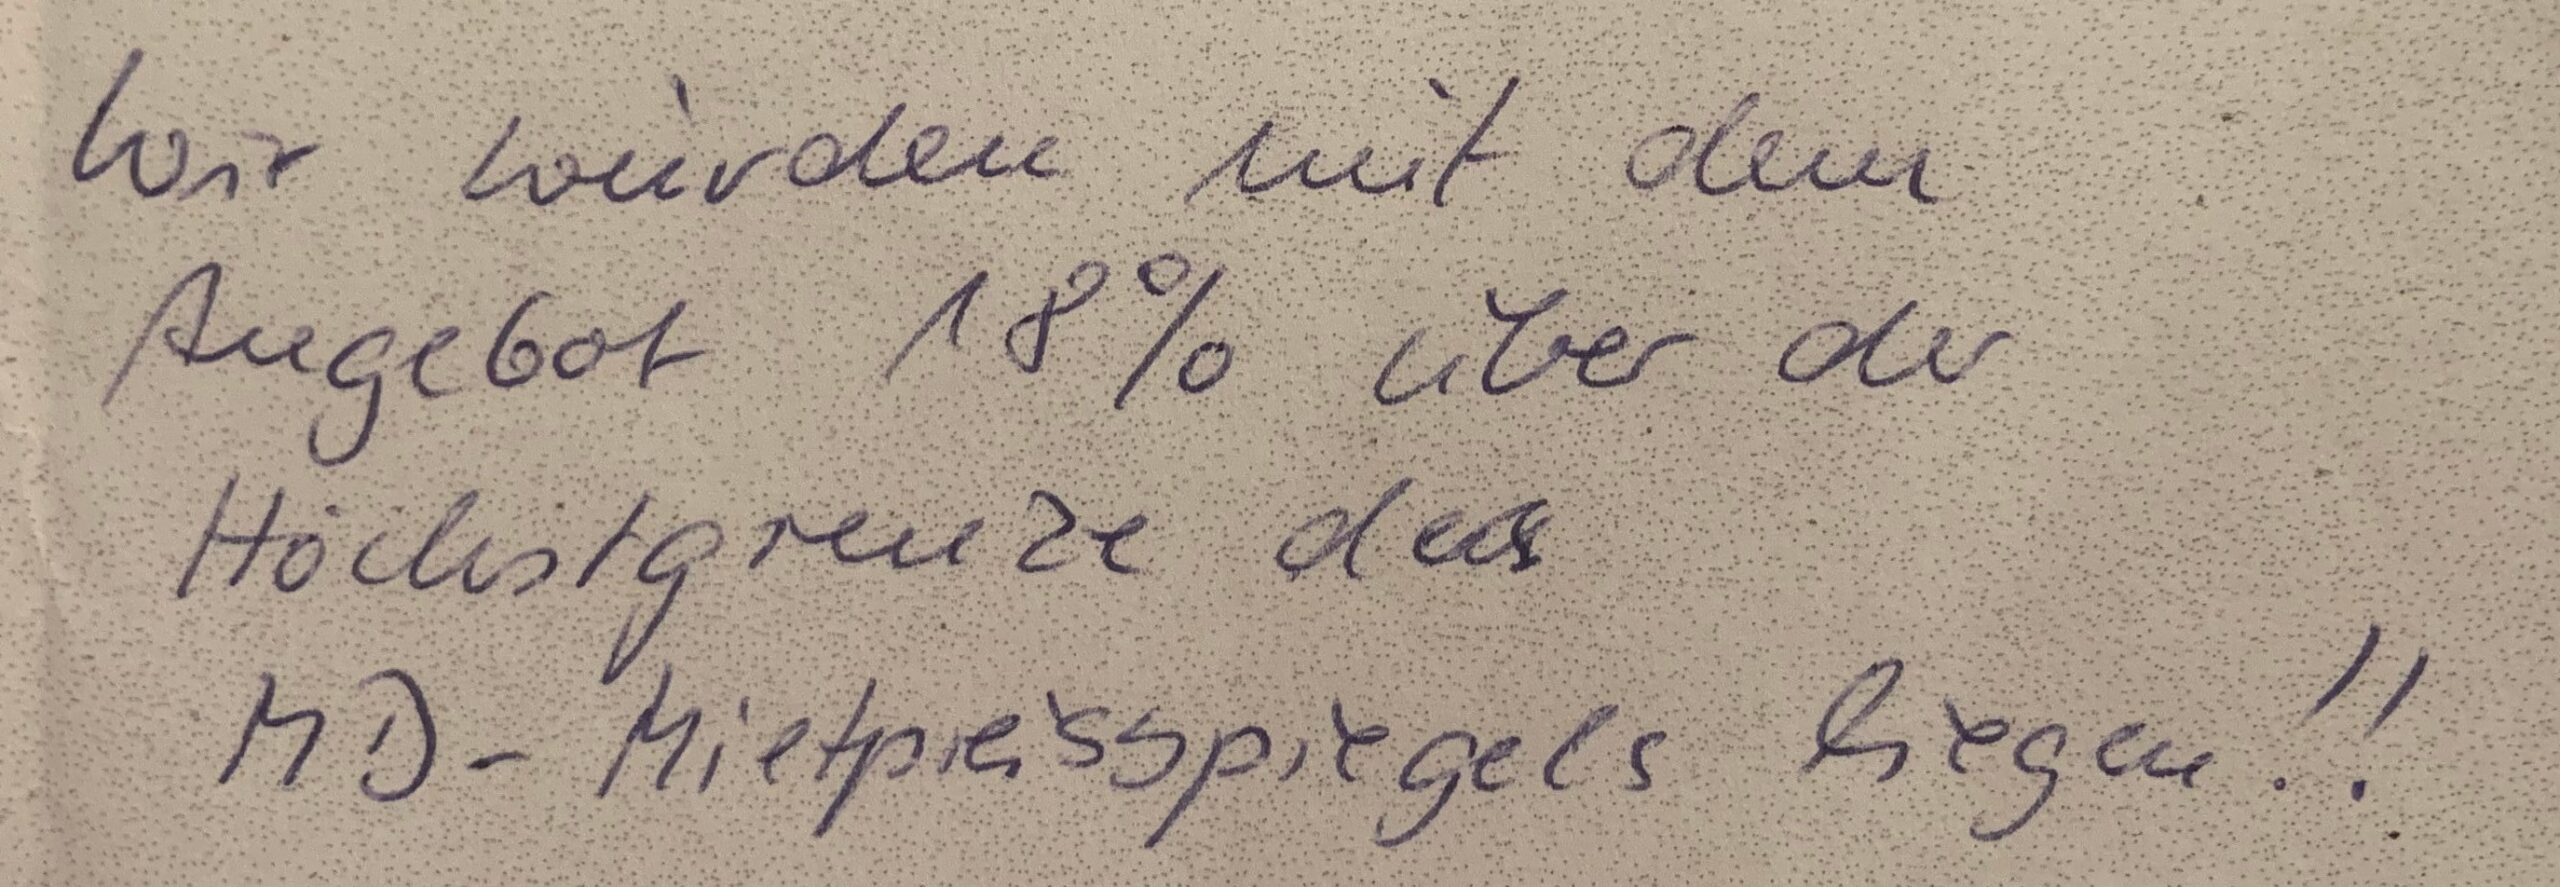 Wir würden mit dem
Angebot 18% über der
Höchstgrenze des
MD-Mietpreisspiegels liegen!!